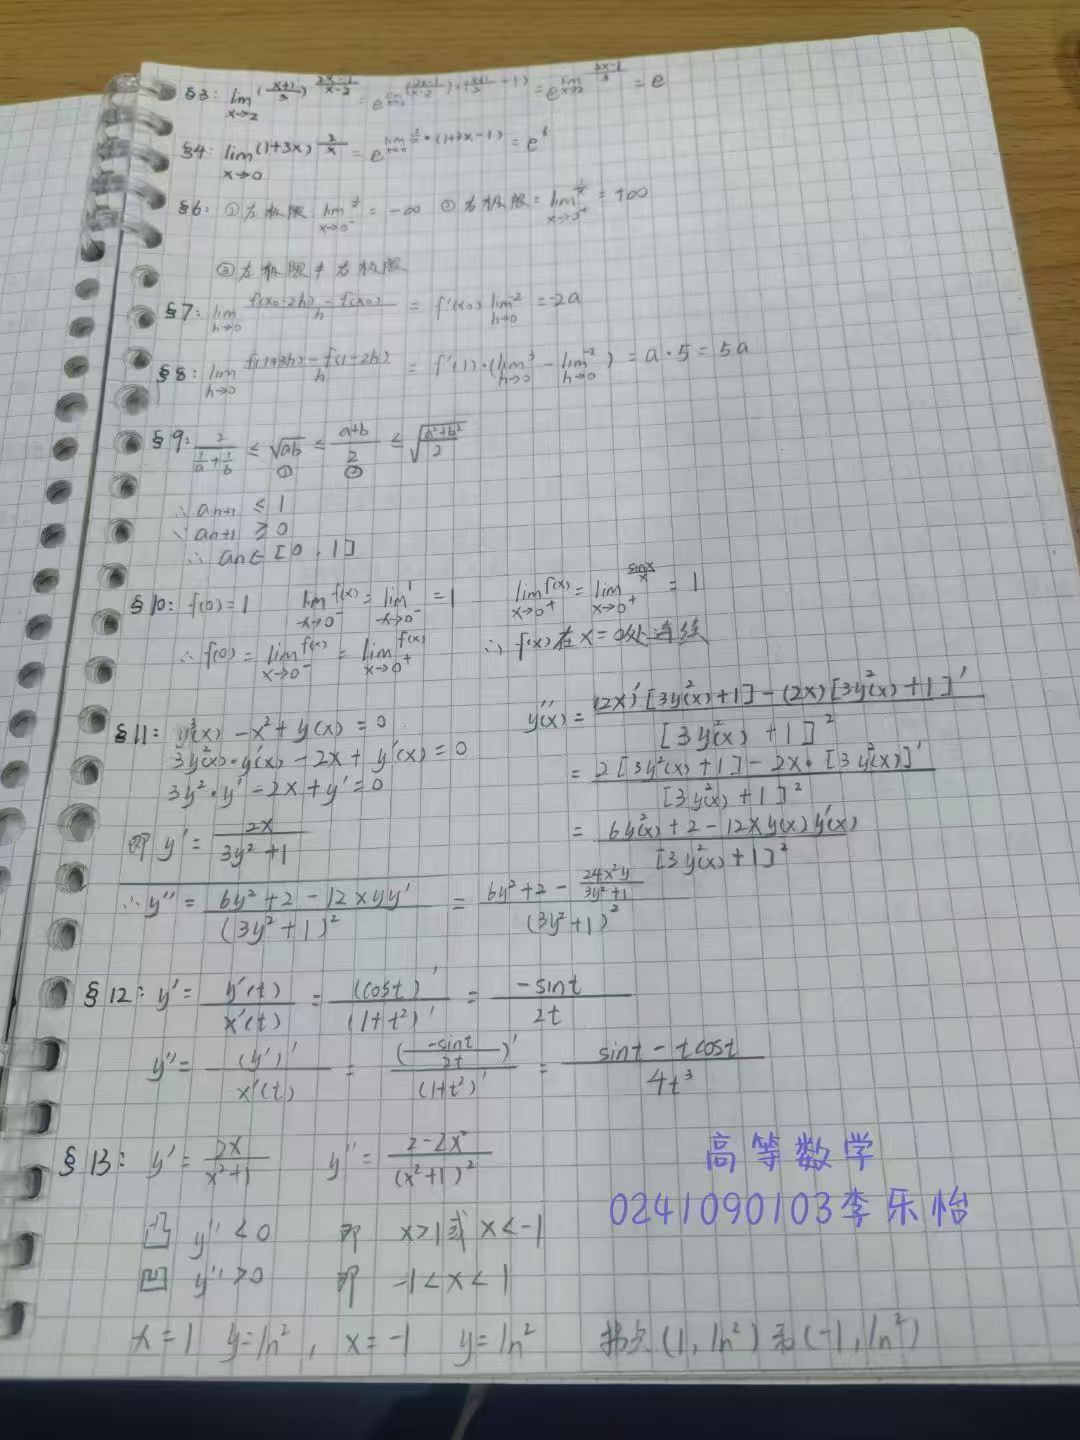 §3: lim x→2 (x+1/3)^(2x-1/x-2) = e^(lim x→2 (2x-1/x-2)·(x+1/3 - 1)) = e^(lim x→2 2x-1/3) = e
§4: lim x→0 (1+3x)^(2/x) = e^(lim x→0 2/x·(1+3x-1)) = e^6
§6: ① 左极限 lim x→0⁻ = -∞ ② 右极限 = lim x→0⁺ = +∞
③ 左极限 ≠ 右极限
§7: lim h→0 f(x0-2h)-f(x0)/h = f'(x0) lim h→0 -2 = -2a
§8: lim h→0 f(1+3h)-f(1-2h)/h = f'(1)·(lim h→0 3 - lim h→0 -2) = a·5 = 5a
§9: 2/(1/a+1/b) ≤ √ab ≤ a+b/2 ≤ √(a²+b²/2)
① ②
∴ an+1 ≤ 1
∵ an+1 ≥ 0
∴ an∈[0,1]
§10: f(0)=1 lim x→0⁻ f(x) = lim x→0⁻ 1 = 1 lim x→0⁺ f(x) = lim x→0⁺ sinx/x = 1
∴ f(0) = lim x→0⁻ f(x) = lim x→0⁺ f(x) ∴ f(x)在x=0处连续
§11: y³(x) - x² + y(x) = 0
3y²(x)·y'(x) - 2x + y'(x) = 0
3y²·y' - 2x + y' = 0
即 y' = 2x/3y²+1
y''(x) = (2x)'[3y²(x)+1]-(2x)[3y²(x)+1]'/[3y²(x)+1]²
= 2[3y²(x)+1]-2x·[3y²(x)]'/[3y²(x)+1]²
= 6y²(x)+2-12xy(x)y'(x)/[3y²(x)+1]²
∴ y'' = 6y²+2-12xyy'/(3y²+1)² = 6y²+2-24x²y/3y²+1/(3y²+1)²
§12: y' = y'(t)/x'(t) = (cost)'/(1+t²)' = -sint/2t
y'' = (y')'/x'(t) = (-sint/2t)'/(1+t²)' = sint-tcost/4t³
§13: y' = 2x/x²+1 y'' = 2-2x²/(x²+1)²
高等数学
0241090103李乐怡
凸 y''<0 即 x>1或x<-1
凹 y''>0 即 -1<x<1
x=1 y=ln², x=-1 y=ln² 拐点(1,ln²)和(-1,ln²)